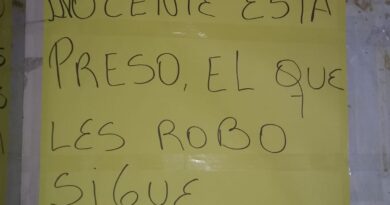 INOCENTE ESTA
PRESO, EL QUE
LES ROBO
SIGUE